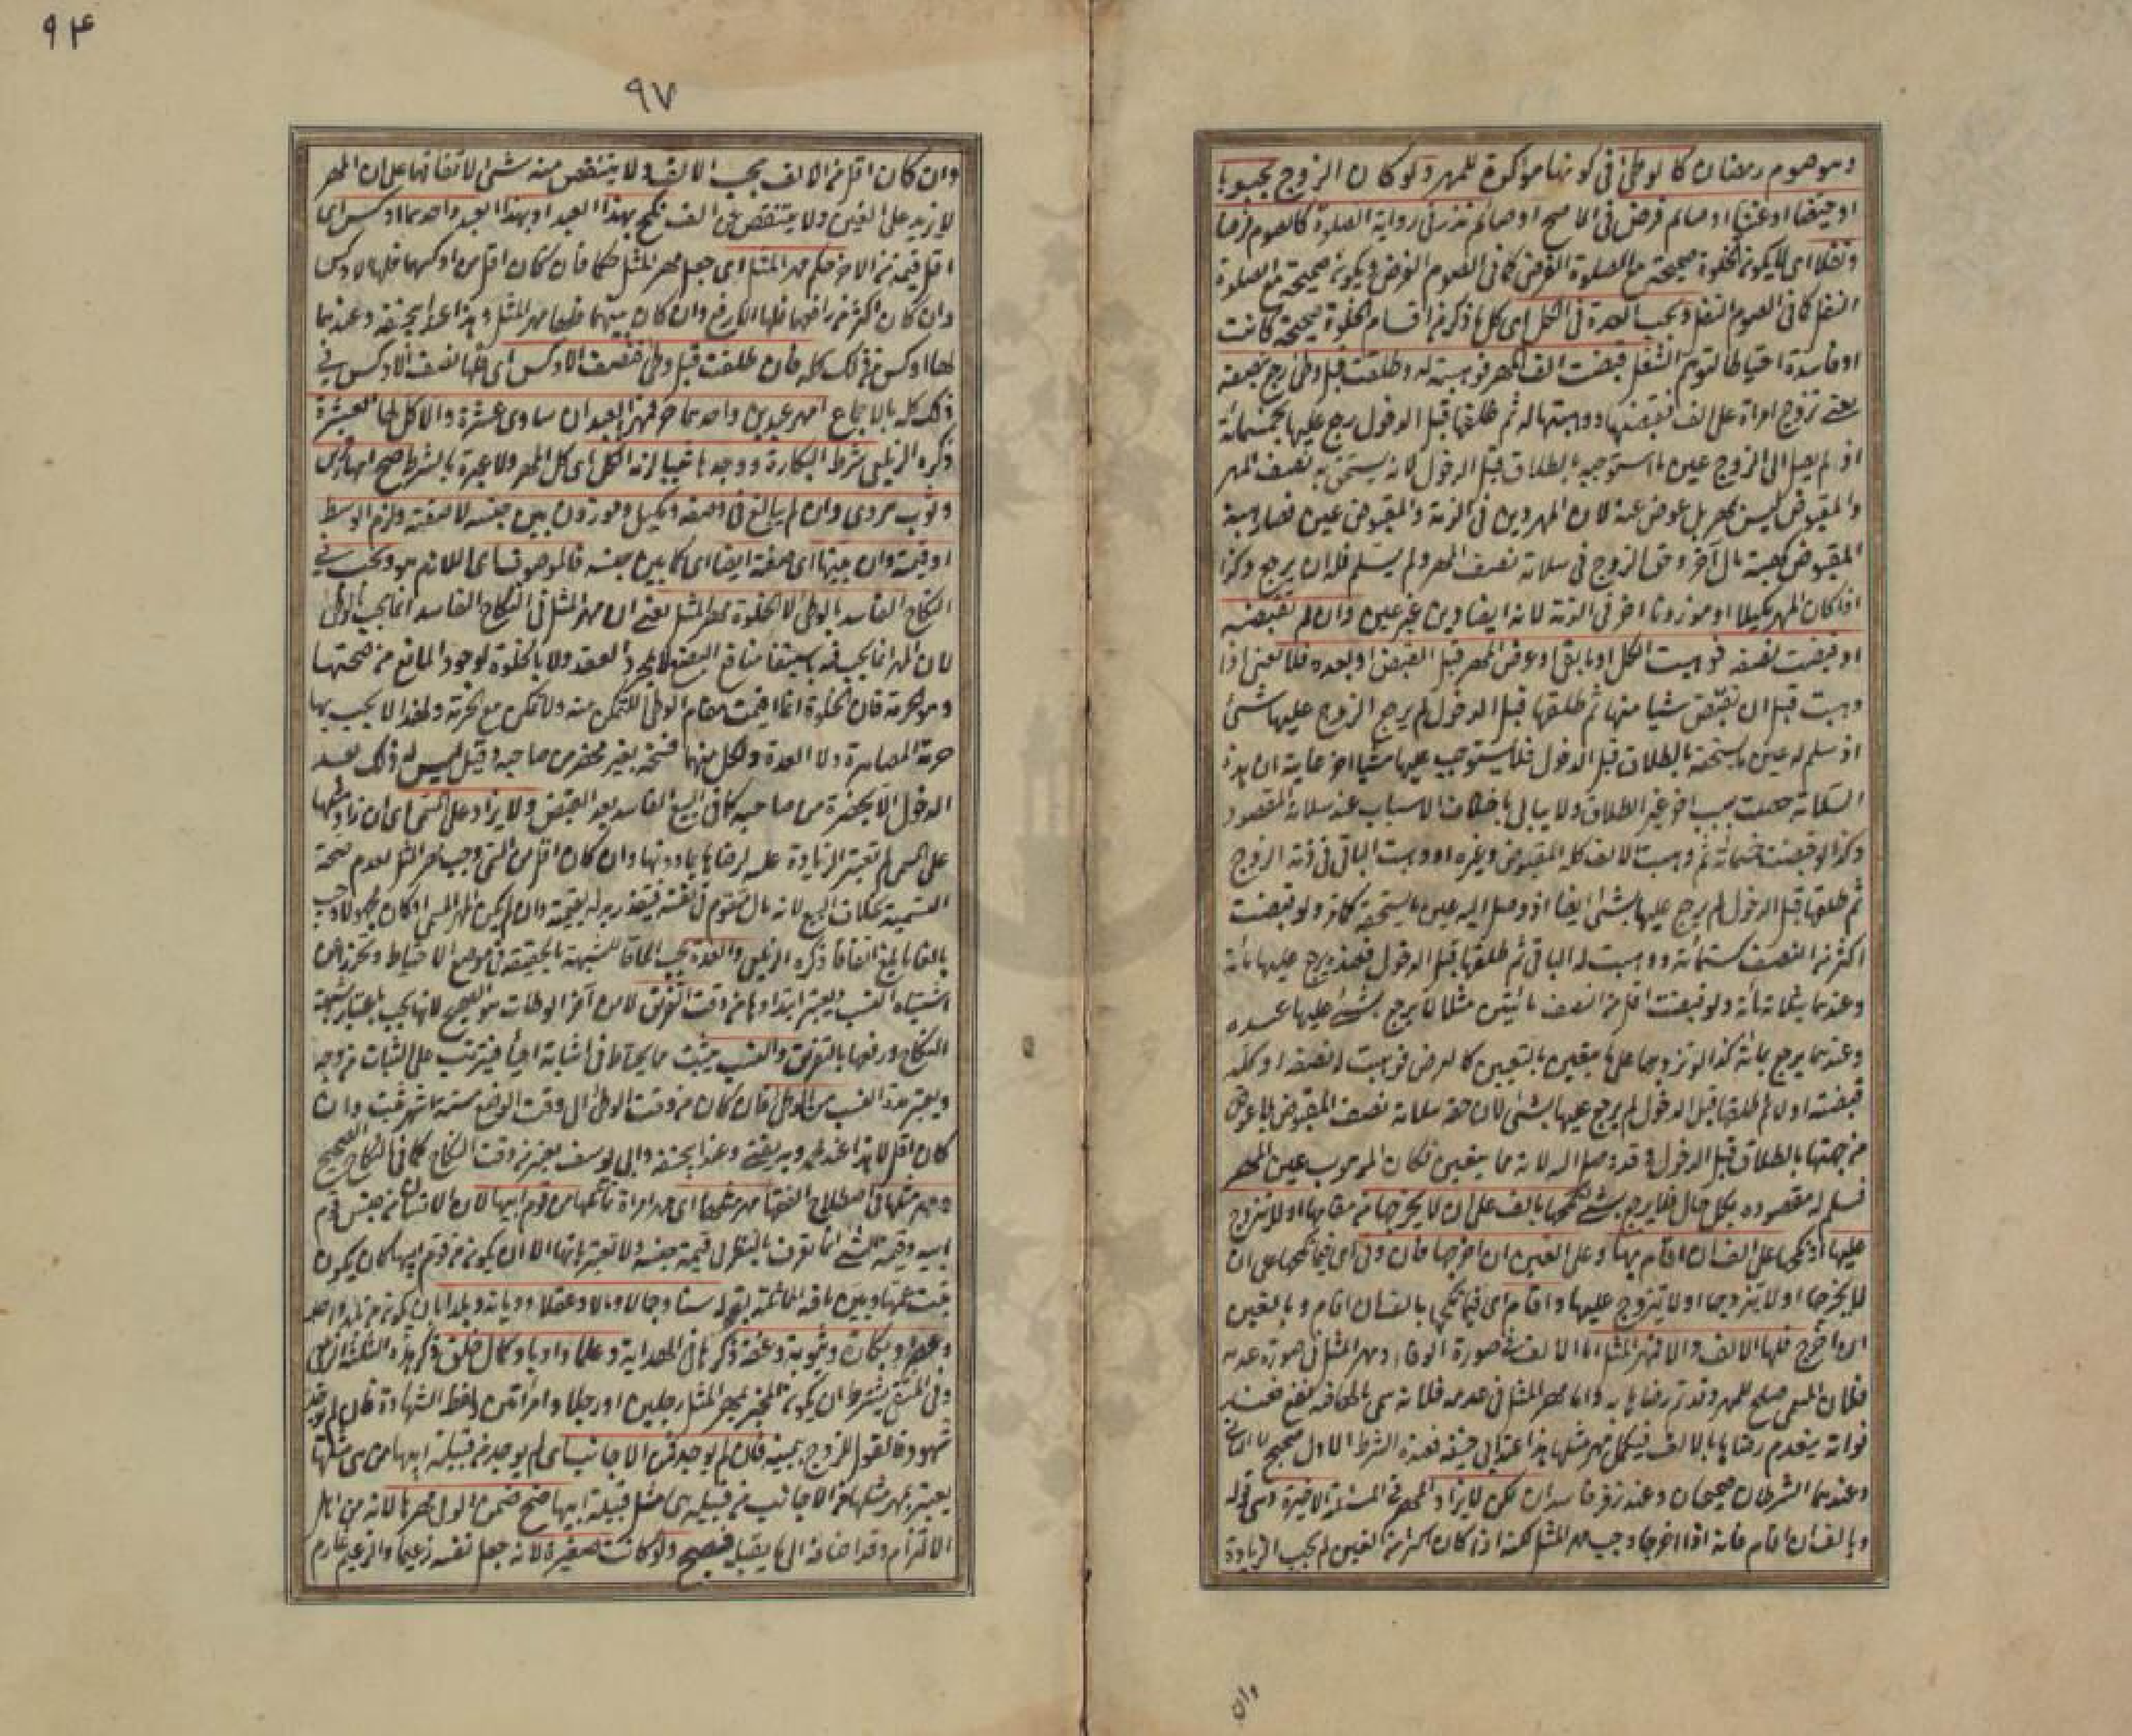 وهو صوم رمضان كالوطئ في كونها مؤكدة للمهر ولو كان الزوج مجبوبا
او عنينا او صائم فرض في الاصح او صائم نذر في رواية الصلوة كالصوم فرضا
ونفلا اي لا يكون الخلوة صحيحة مع الصلوة الفرض كما في الصوم الفرض ويكون صحيحة مع الصلوة
النفل كما في الصوم النفل وتجب العدة في الكل اي كل ما ذكر من اقسام الخلوة صحيحة كانت
او فاسدة احتياطا لتوهم الشغل قبضت الف المهر فوهبته له وطلقت قبل وطئ رجع بنصفه
يعني تزوج امرأة على الف فقبضتها ووهبتها له ثم طلقها قبل الدخول رجع عليها بخمسمائة
اذ لم يصل الى الزوج عين ما استوجبه بالطلاق قبل الدخول لانه يستحق به نصف المهر
والمقبوض ليس بمهر بل عوض عنه لان المهر دين في الذمة والمقبوض عين فصار هبة
المقبوض كهبة مال آخر وحق الزوج في سلامة نصف المهر ولم يسلم فله ان يرجع وكذا
اذا كان المهر مكيلا او موزونا اخر في الذمة لانه ايضا دين غير عين وان لم تقبضه
او قبضت نصفه فوهبت الكل او ما بقي او عرض المهر قبل القبض او بعده فلا يعني اذا
وهبت قبل ان تقبض شيا منها ثم طلقها قبل الدخول لم يرجع الزوج عليها بشئ
اذ سلم له عين ما يستحقه بالطلاق قبل الدخول فلا يستوجب عليها شيا اخر غايته ان هذه
السلامة حصلت بسبب اخر غير الطلاق ولا يبالي باختلاف الاسباب عند سلامة المقصود
وكذا لو قبضت خمسمائة ثم وهبت الالف كله المقبوض وغيره او وهبت الباقي في ذمة الزوج
ثم طلقها قبل الدخول لم يرجع عليها بشئ ايضا اذ وصل اليه عين ما يستحقه كما مر ولو قبضت
اكثر من النصف كستمائة ووهبت له الباقي ثم طلقها قبل الدخول فعنده يرجع عليها بمائة
وعندهما بثلثمائة ولو قبضت اقل من النصف مائتين مثلا لا يرجع بشئ عليها عنده
وعندهما يرجع بمائة كذا لو تزوجها على ما يتعين بالتعيين كالعرض فوهبت له نصفه او كله
قبضته او لا ثم طلقها قبل الدخول لم يرجع عليها بشئ لان حقه سلامة نصف المقبوض بلا عوض
من جهتها بالطلاق قبل الدخول وقد وصل اليه لانه مما يتعين فكان الموهوب عين المهر
فسلم له مقصوده بكل حال فلا يرجع بشئ نكحها بالف على ان لا يخرجها من مقامها او لا يتزوج
عليها او نكحها على الف ان اقام بها وعلى الفين ان اخرجها فان وفى اي فيما نكحها على ان
لا يخرجها او لا يتزوجها او لا يتزوج عليها واقام اي فيما نكحها بالف ان اقام وبالفين
ان اخرج فلها الالف والا فمهر المثل اما الالف في صورة الوفاء ومهر المثل في صورة عدمه
فلان المسمى صلح للمهر وقد تم رضاها به واما مهر المثل في عدمه فلانه سمى مالها فيه نفع فعند
فواته ينعدم رضاها بالالف فيكمل مهر مثلها هذا عند ابي حنيفة فعنده الشرط الاول صحيح لا الثاني
وعندهما الشرطان صحيحان وعند زفر فاسدان لكن لا يزاد المهر في المسئلة الاخيرة وهي قوله
وبالف ان اقام فانه اذا اخرجها وجب مهر المثل لكنه اذا كان اكثر من الفين لم يجب الزيادة
وان
٩٤
٩٧
وان كان اقل من الالف يجب الالف ولا ينتقص منه شئ لاتفاقهما على ان المهر
لا يزيد على الفين ولا ينتقص عن الف نكح بهذا العبد او بهذا العبد واحدهما اوكس اي
اقل قيمة من الاخر حكم مهر المثل اي جعل مهر المثل حكما فان كان اقل من اوكسهما فلها الاوكس
وان كان اكثر من ارفعهما فلها الارفع وان كان بينهما فلها مهر المثل وهذا عند ابي حنيفة وعندهما
لها الاوكس في ذلك كله فان طلقت قبل وطئ فنصف الاوكس اي فلها نصف الاوكس في
ذلك كله بالاجماع امهر عبدين واحدهما حر فمهرها العبد ان ساوى عشرة والا كمل لها العشرة
ذكره الزيلعي شرط البكارة ووجدها ثيبا لزمه الكل اي كل المهر ولا عبرة بالشرط صح امهار فرس
وثوب هروي وان لم يبالغ في وصفه ومكيل وموزون بين جنسه لا صفته ولزم الوسط
او قيمته وان بينها اي صفته ايضا اي كما بين جنسه فالموصوف اي اللازم هو ويجب في
النكاح الفاسد بالوطئ لا الخلوة مهر المثل يعني ان مهر المثل في النكاح الفاسد انما يجب بالوطئ
لان المهر انما يجب فيه باستيفاء منافع البضع لا بمجرد العقد ولا بالخلوة لوجود المانع من صحتها
وهو الحرمة فان الخلوة انما اقيمت مقام الوطئ للتمكن منه ولا تمكن مع الحرمة ولهذا لا يجب بها
حرمة المصاهرة ولا العدة ولكل منهما فسخه بغير محضر من صاحبه وقيل ليس له ذلك بعد
الدخول الا بحضرة من صاحبه كما في البيع الفاسد بعد القبض ولا يزاد على المسمى اي ان زاد مهر مثلها
على المسمى لم تعتبر الزيادة عليه لرضاها بما دونها وان كان اقل من المسمى وجب مهر المثل لعدم صحة
التسمية بخلاف البيع لانه مال متقوم في نفسه فيتقدر بدله بقيمته وان لم يكن المهر المسمى او كان مجهولا وجب
بالغا ما بلغ اتفاقا ذكره الزيلعي والعدة يجب الحاقا للشبهة بالحقيقة في موضع الاحتياط وتحرزا عن
اشتباه النسب ويعتبر ابتداؤها من وقت التفريق لا من آخر الوطئات هو الصحيح لانها تجب باعتبار شبهة
النكاح ورفعها بالتفريق والنسب يثبت مما يحتاط في اثباته احياء فيترتب على الثابت من وجه
ويعتبر مدة النسب من الوطئ فان كان من وقت الوطئ الى وقت الوضع ستة اشهر يثبت وان
كان اقل لا هذا عند محمد وبه يفتى وعند ابي حنيفة وابي يوسف يعتبر من وقت النكاح كما في النكاح الصحيح
ومهر مثلها في اصطلاح الفقهاء مهر مثلها اي مهر امرأة تماثلها من قوم ابيها لان الانسان من جنس قوم
ابيه وقيمة الشئ انما تعرف بالنظر في قيمة جنسه ولا تعتبر بامها الا ان يكون من قوم ابيها كان يكون
بنت عمها وبين ما فيه المماثلة بقوله سنا وجمالا ومالا وعقلا ودينا وبلدا بان يكونا من بلد واحد
وعصرا وبكارة وثيوبة وعفة ذكرها في الهداية وعلما وادبا وكمال خلق ذكر هذه الثلثة الزيلعي
وفي المنتقى يشترط ان يكون المخبر بمهر المثل رجلين او رجلا وامرأتين ولفظ الشهادة فان لم يوجد
شهود فالقول للزوج بيمينه فان لم يوجد فمن الاجانب اي لم يوجد من قبيلة ابيها من هي مثلها
يعتبر بمهر مثلها من الاجانب من قبيلة هي مثل قبيلة ابيها صح ضمان الولي مهرها لانه من اهل
الالتزام وقد اضافه الى ما يقبله فيصح ولو كانت صغيرة لانه جعل نفسه زعيما والزعيم غارم